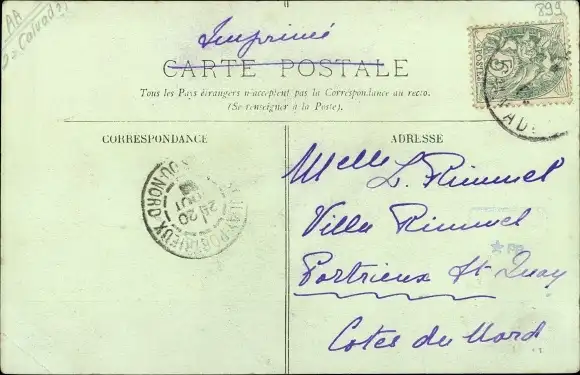 AA
Calvad
899
Imprimé
CARTE POSTALE
Tous les Pays étrangers n'acceptent pas la Correspondance au recto.
(Se renseigner à la Poste).
CORRESPONDANCE
ADRESSE
Melle L. Rimmel
Villa Rimmel
Portrieux St Quay
Cotes du Nord
QUAY-PORTRIEUX
DU-NORD
20
POSTES
5
PP